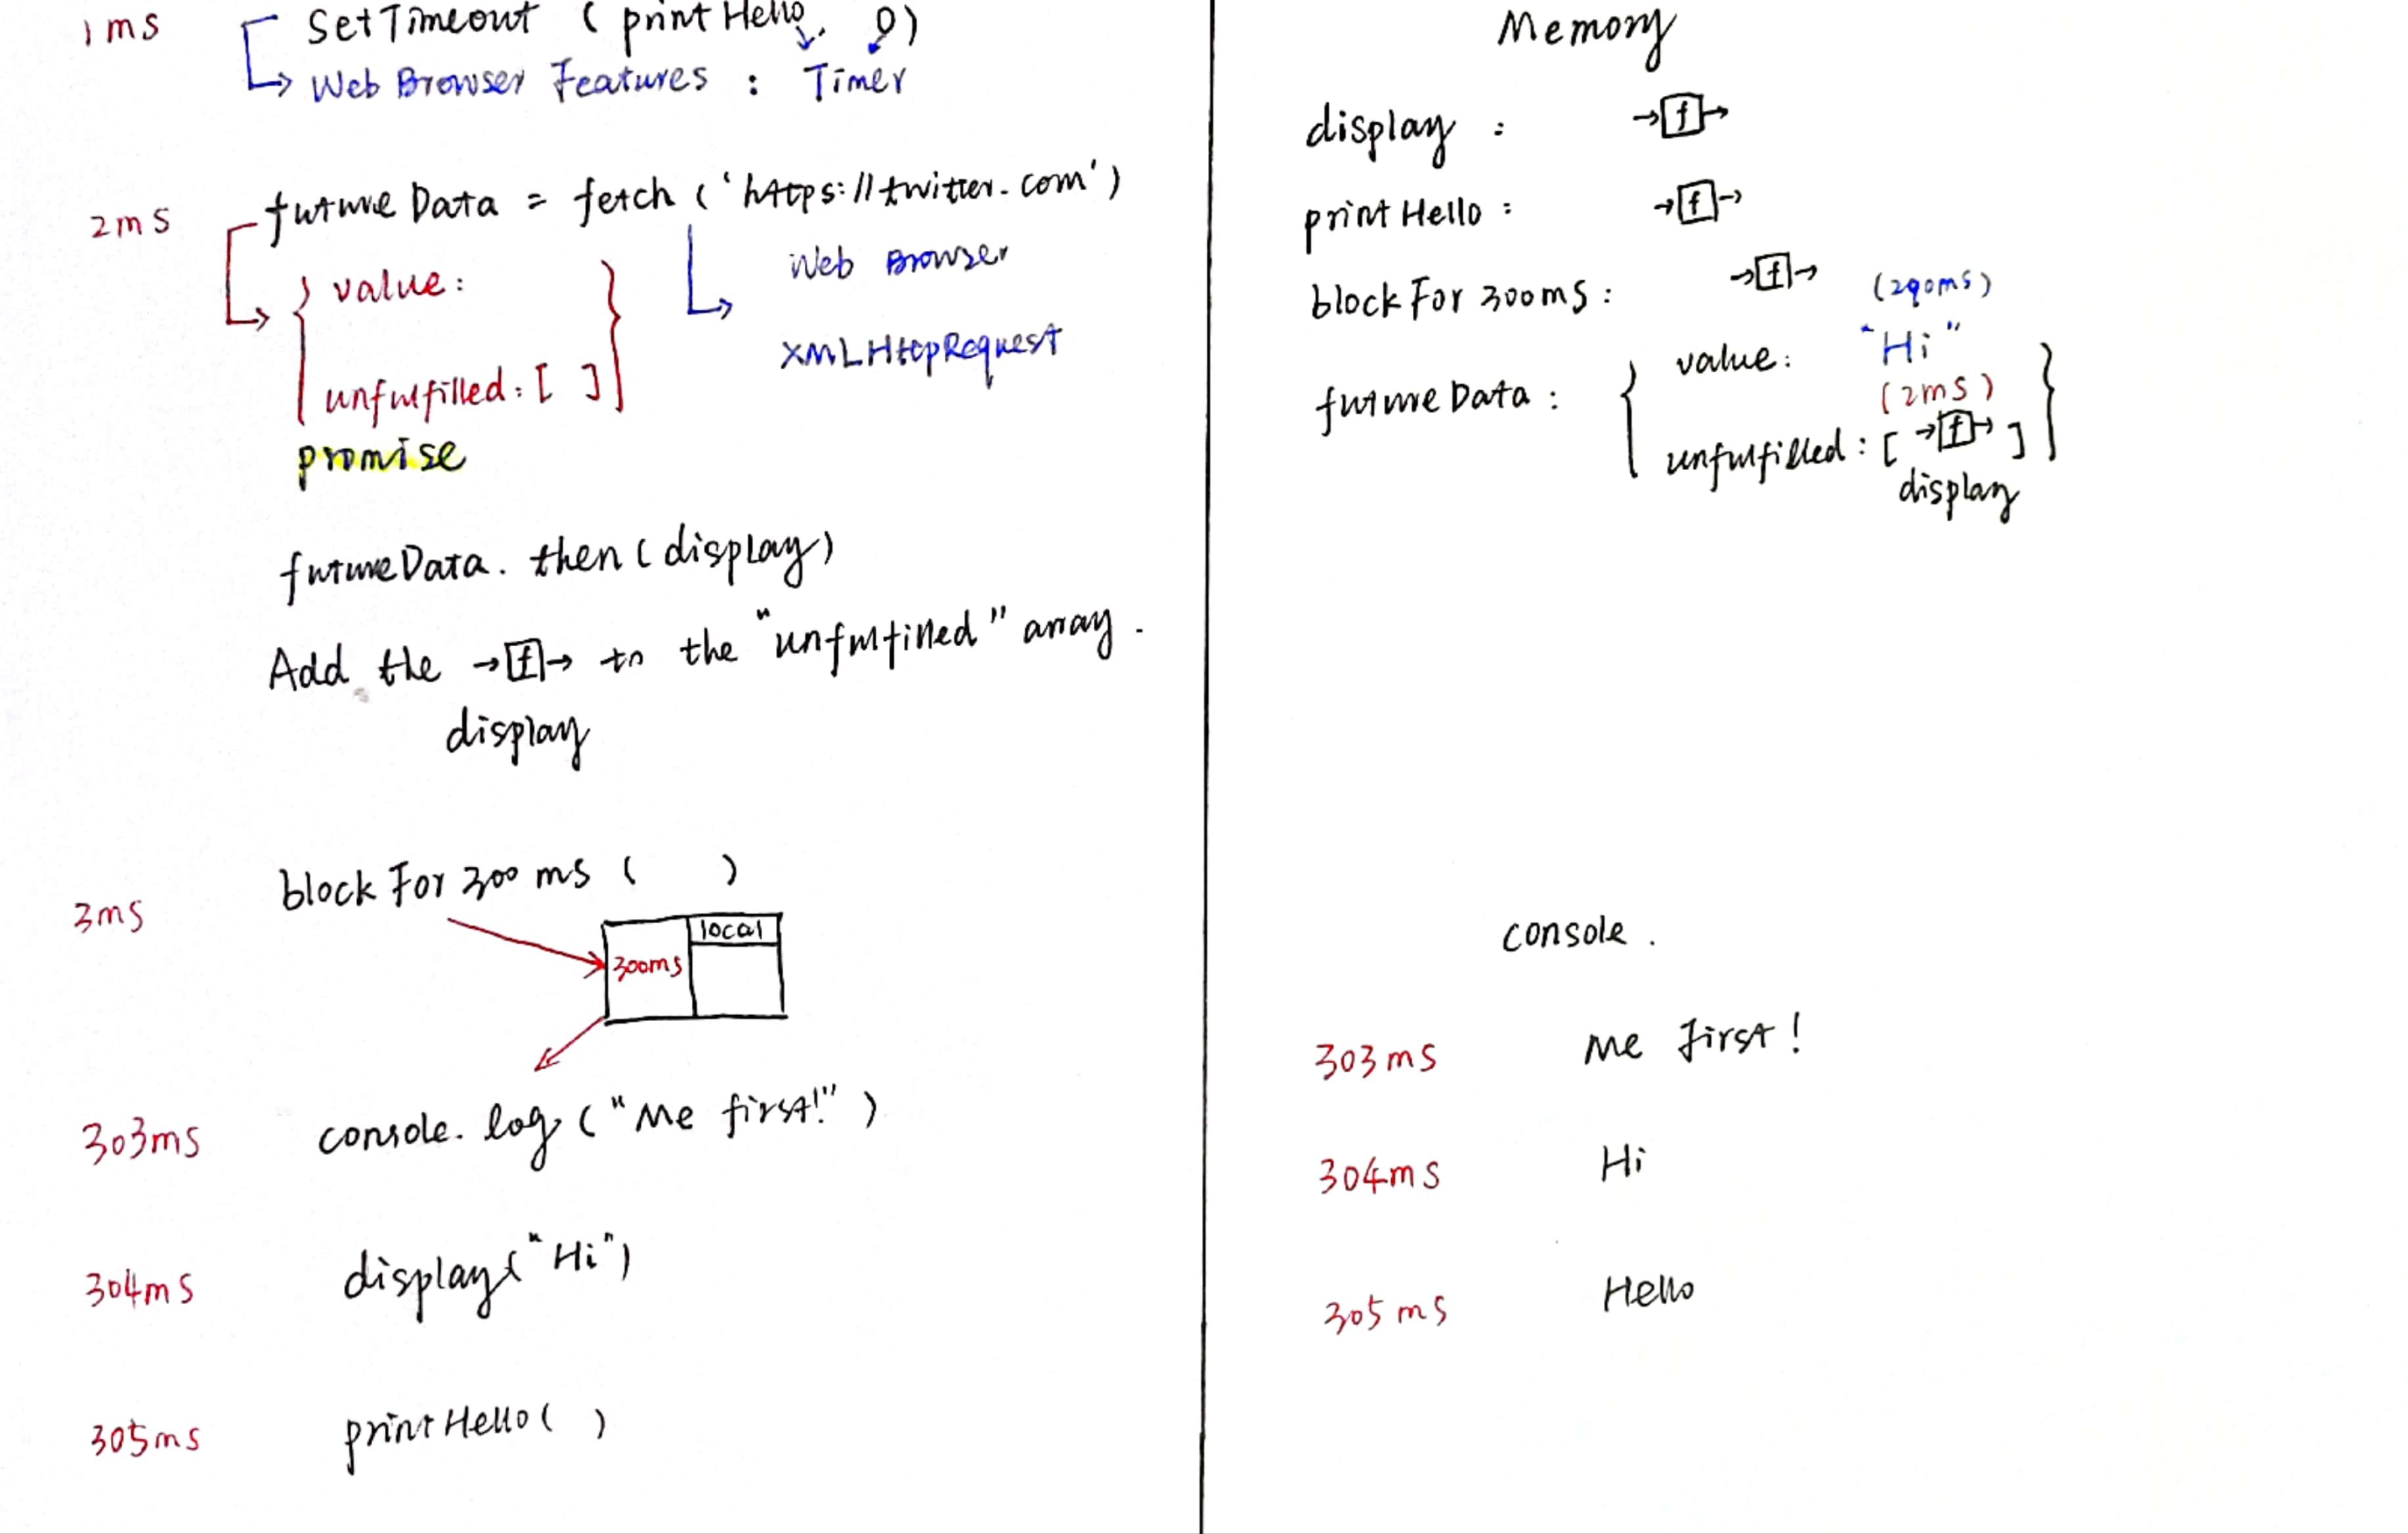 1ms SetTimeout ( printHello, 0)
Web Browser Features : Timer
2ms futureData = fetch ('https://twitter.com')
{ value:
Web Browser
XMLHttpRequest
unfulfilled: [ ] }
promise
futureData. then (display)
Add the →[f]→ to the "unfulfilled" array.
display
3ms blockFor 300 ms ( )
local
300ms
303ms console. log ("Me first!")
304ms display ("Hi")
305ms printHello ( )
Memory
display : →[f]→
printHello : →[f]→
blockFor 300ms : →[f]→
(290ms)
futureData : { value: "Hi"
(2ms)
unfulfilled : [ →[f]→ ] }
display
console.
303ms Me first!
304ms Hi
305ms Hello